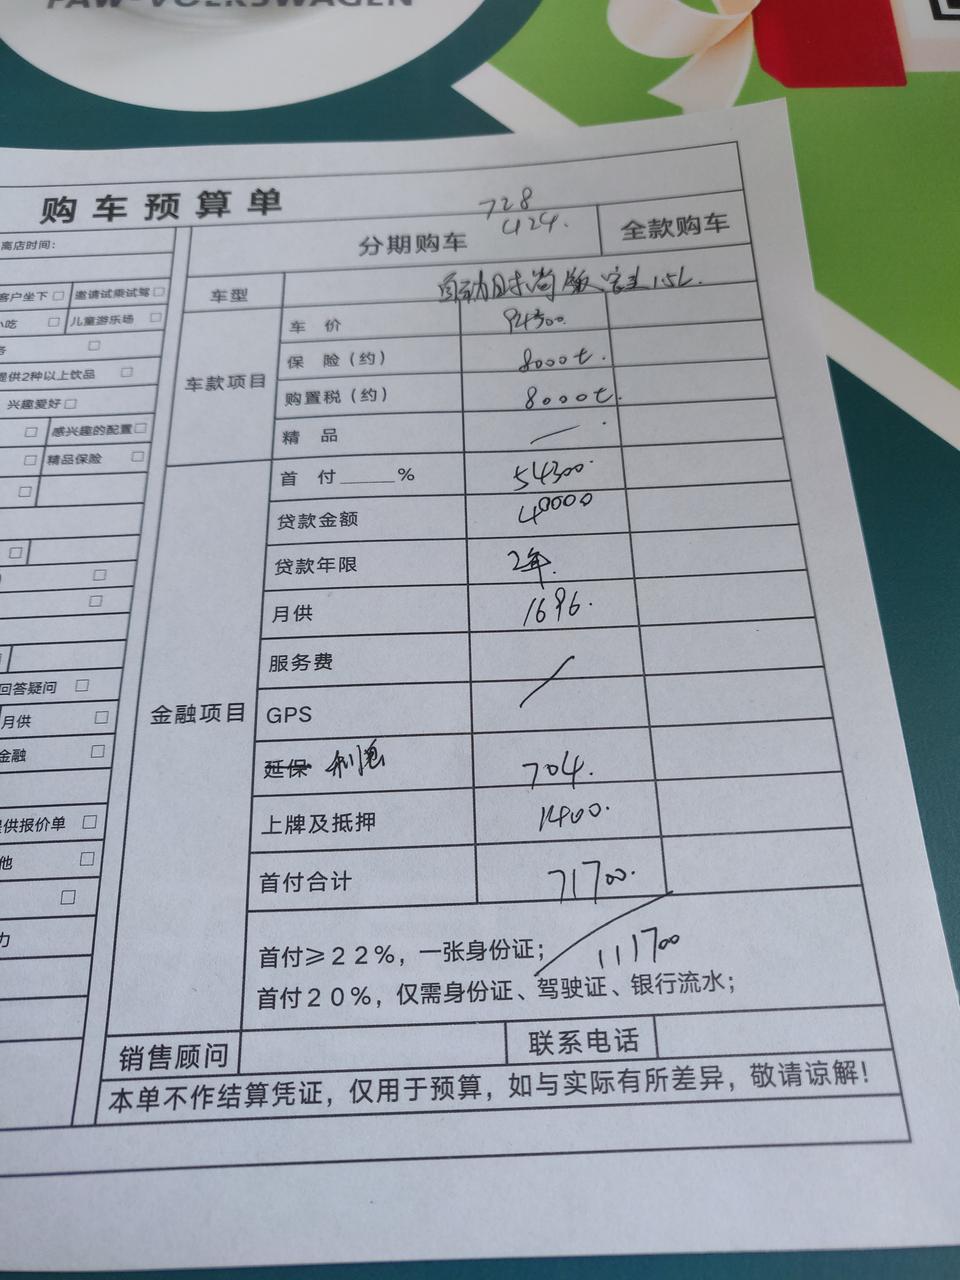 FAW-VOLKSWAGEN
购车预算单
728
424.
离店时间:
客户坐下□ 邀请试乘试驾□
小吃 □ 儿童游乐场 □
务 □
提供2种以上饮品 □
兴趣爱好□
□ 感兴趣的配置□
□ 精品保险 □
□
□
□
□
回答疑问 □
月供 □
金融 □
提供报价单 □
他 □
□
力
分期购车 全款购车
车型 自动时尚版 宝来1.5L.
车款项目
车 价 94300.
保 险(约) 8000t.
购置税(约) 8000t.
精 品 — .
金融项目
首 付_____% 54300.
贷款金额 40000
贷款年限 2年.
月供 1696.
服务费 /
GPS
延保 利息 704.
上牌及抵押 1400.
首付合计 71700.
首付≥22%,一张身份证; 111700
首付20%,仅需身份证、驾驶证、银行流水;
销售顾问 联系电话
本单不作结算凭证,仅用于预算,如与实际有所差异,敬请谅解!